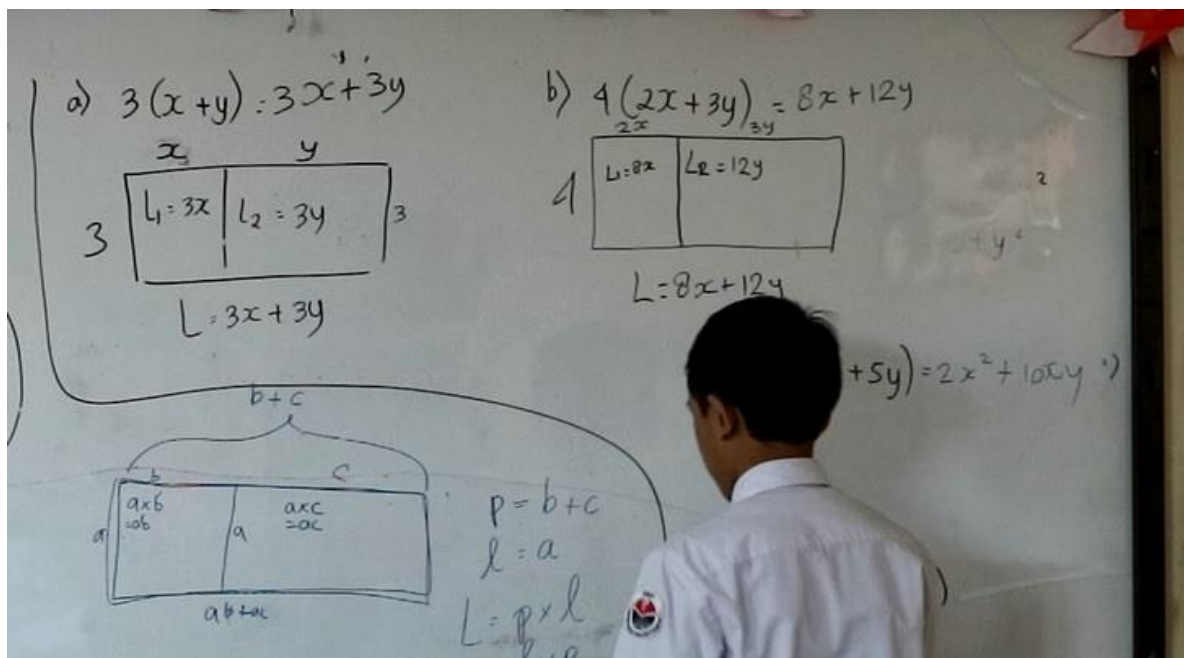 a) 3(x+y) = 3x+3y
x y
3 L₁ = 3x L₂ = 3y 3
L = 3x + 3y
b) 4(2x+3y) = 8x+12y
2x 3y
4 L₁=8x L₂=12y
L=8x+12y
+5y)=2x²+10xy
b+c
b c
a a×b a a×c
=ab =ac
ab+ac
p = b+c
l = a
L = p×l